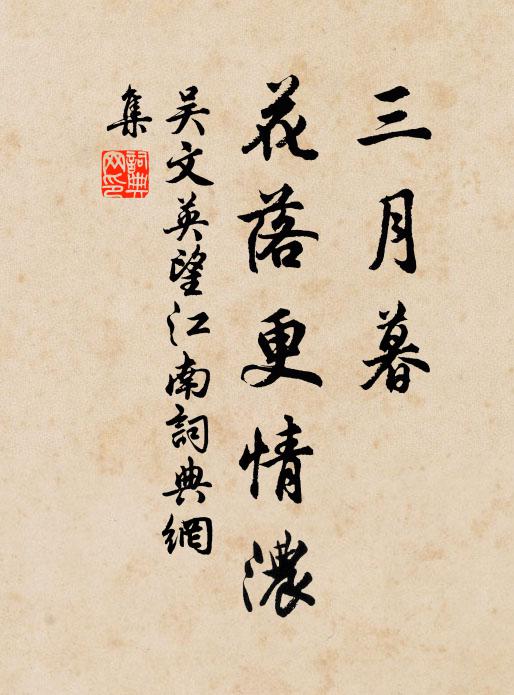 三月暮
花落更情濃
吴文英望江南詞典網
集
詞典網印